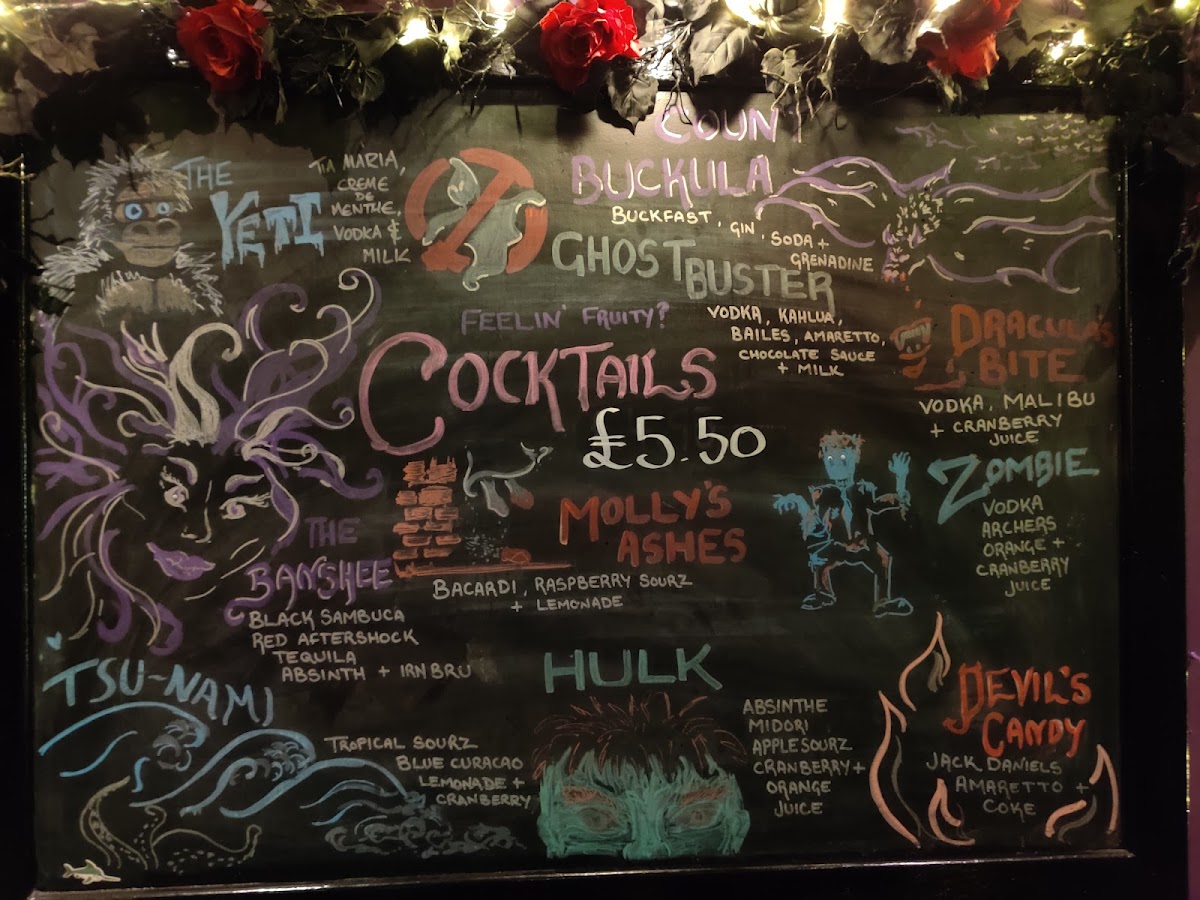 THE
YETI
TIA MARIA,
CREME
DE
MENTHE,
VODKA &
MILK
COUNT
BUCKULA
BUCKFAST, GIN, SODA +
GRENADINE
GHOSTBUSTER
VODKA, KAHLUA,
BAILES, AMARETTO,
CHOCOLATE SAUCE
+ MILK
FEELIN' FRUITY?
COCKTAILS
£5.50
DRACULA'S
BITE
VODKA, MALIBU
+ CRANBERRY
JUICE
THE
BANSHEE
BLACK SAMBUCA
RED AFTERSHOCK
TEQUILA
ABSINTH + IRN BRU
MOLLY'S
ASHES
BACARDI, RASPBERRY SOURZ
+ LEMONADE
ZOMBIE
VODKA
ARCHERS
ORANGE +
CRANBERRY
JUICE
TSU-NAMI
TROPICAL SOURZ
BLUE CURACAO
LEMONADE +
CRANBERRY
HULK
ABSINTHE
MIDORI
APPLESOURZ
CRANBERRY +
ORANGE
JUICE
DEVIL'S
CANDY
JACK DANIELS
AMARETTO +
COKE